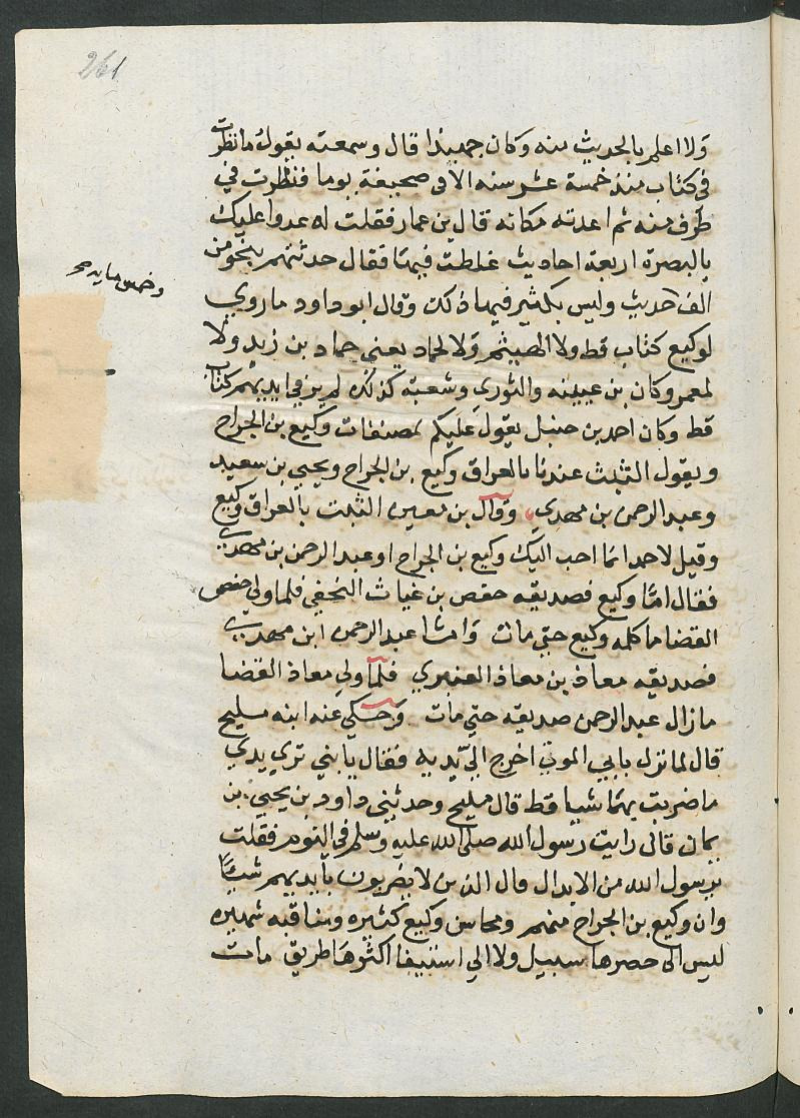 261
ولا اعلم بالحديث منه وكان جهبذا قال وسمعته يقول ما نظرت
في كتاب منذ خمسة عشر سنه الا في صحيفة يوما فنظرت في
طرف منه ثم اعدته مكانه قال بن عمار فقلت له عدوا عليك
بالبصرة اربعة احاديث غلطت فيها فقال حدثتهم بنحو من
الف حديث وليس بكثير فيها ذلك وقال ابو داود ما روي
وخمس مايه صح
لوكيع كتاب قط ولا لهشيم ولا لحماد يعني حماد بن زيد ولا
لمعمر وكان بن عيينه والثوري وشعبة كذلك لم ير في ايديهم كتاب
قط وكان احمد بن حنبل يقول عليكم بمصنفات وكيع بن الجراح
ويقول الثبت عندنا بالعراق وكيع بن الجراح ويحيي بن سعيد
وعبد الرحمن بن مهدي وقال بن معين الثبت بالعراق وكيع
وقيل لاحمد ايما احب اليك وكيع بن الجراح او عبد الرحمن بن مهدي
فقال اما وكيع فصديقه حفص بن غياث النخعي فلما ولي حفص
القضا ما كلمه وكيع حتي مات واما عبد الرحمن ابن مهدي
فصديقه معاذ بن معاذ العنبري فلما ولي معاذ القضا
ما زال عبد الرحمن صديقه حتي مات وحكي عنه ابنه مليح
قال لما نزل بابي الموت اخرج الي يديه فقال يا بني تري يدي
ما ضربت بهما شيا قط قال مليح وحدثني داود بن يحيي بن
يمان قال رايت رسول الله صلي الله عليه وسلم في النوم فقلت
يرسول الله من الابدال قال الذين لا يضربون بايديهم شيئا
وان وكيع بن الجراح منهم ومحاسن وكيع كثيره ومناقبه شهيره
ليس الي حصرها سبيل ولا الي استيفا اكثرها طريق مات